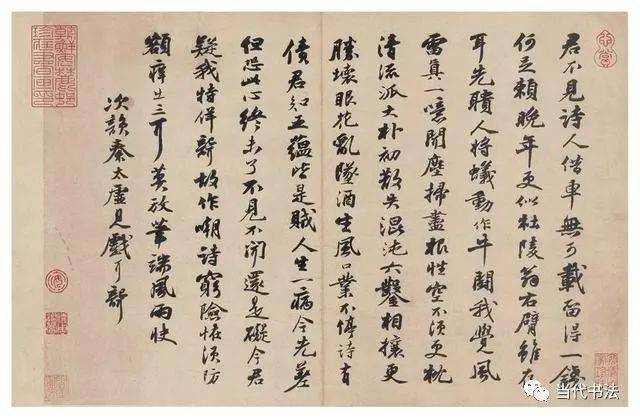 君不見詩人借車無可載留得一錢
何足賴晚年更似杜陵翁右臂雖存
耳先聵人將蟻動作牛鬬我覺風
雷真一噫聞塵掃盡根性空不須更枕
清流派大朴初散失混沌六鑿相攘更
勝壞眼花亂墜酒生風口業不停詩有
債君知五蘊皆是賊人生一病今先差
但恐此心終未了不見不聞還是礙今君
疑我特佯聾故作嘲詩窮險怪須防
額癢出三耳莫放筆端風雨快
次韻秦太虛見戲耳聾
当代书法